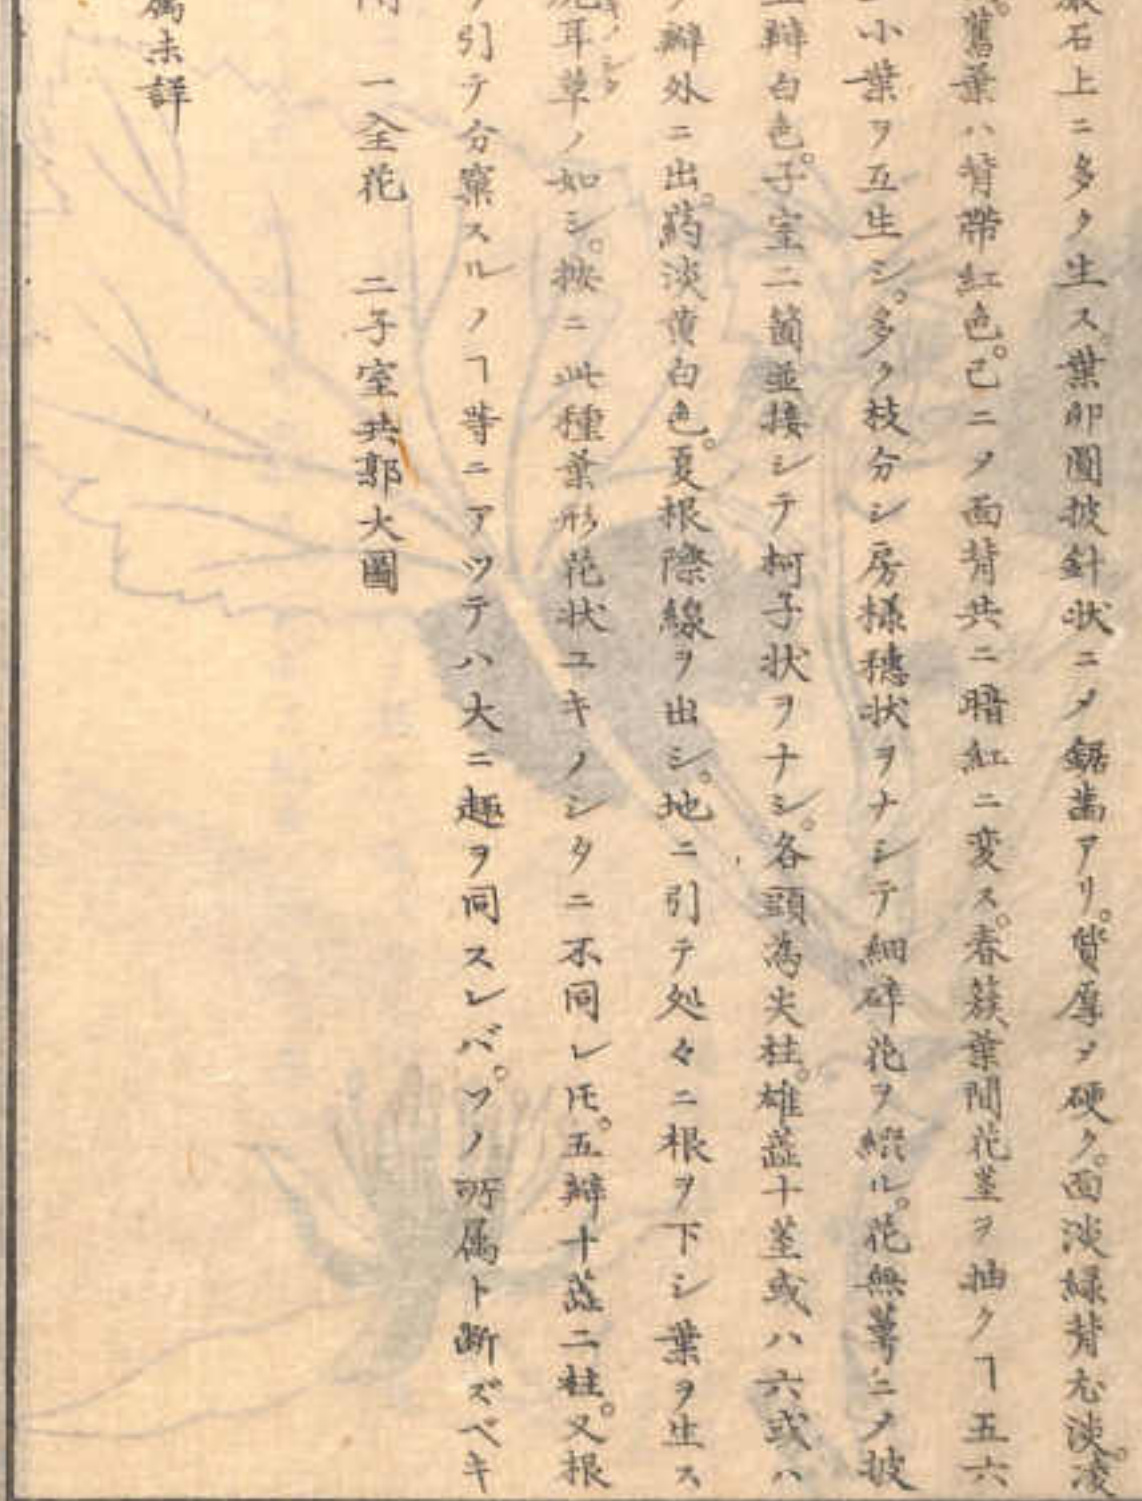 石上ニ多ク生ス。葉卵圓披針状ニメ鋸歯アリ。質厚メ硬ク。面淡緑背尤淡。凌
舊葉ハ背帶紅色。已ニメ面背共ニ暗紅ニ変ス。春簇葉間花莖ヲ抽クヿ五六
小葉ヲ互生シ。多ク枝分シ房様穗状ヲナシテ細碎花ヲ綴ル。花無萼ニメ披
瓣白色。子室二箇並接シテ柯子状ヲナシ。各頭為尖柱。雄蕋十莖或ハ六或ハ
瓣外ニ出。葯淡黄白色。夏根際線ヲ出シ。地ニ引テ処々ニ根ヲ下シ葉ヲ生ス
耳草ノ如シ。按ニ此種葉形花状ユキノシタニ不同レ𪜈。五瓣十蕋二柱。又根
ヲ引テ分窠スルノヿ等ニアツテハ大ニ趣ヲ同スレバ。ソノ所属ト断ズベキ
一全花 二子室共郭大圖
属未詳